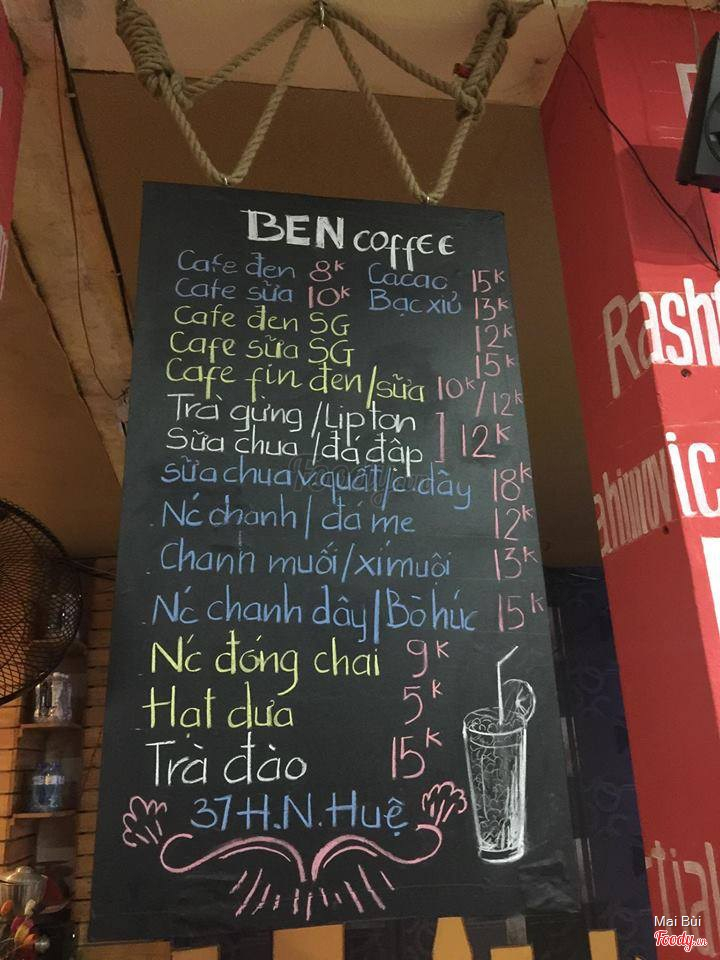 BEN COFFEE
Cafe đen 8K Cacao 15K
Cafe sữa 10K Bạc xỉu 13K
Cafe đen SG 12K
Cafe sữa SG 15K
Cafe fin đen/sữa 10K/12K
Trà gừng/Lipton
Sữa chua/đá đập ] 12K
sữa chua v.quất/c.dây 18K
Nć chanh/đá me 12K
Chanh muối/xí muội 13K
Nć chanh dây/Bò húc 15K
Nć đóng chai 9K
Hạt dưa 5K
Trà đào 15K
37 H.N.Huệ
Rasht
ahimovic
tial
Mai Bùi
Foody.vn